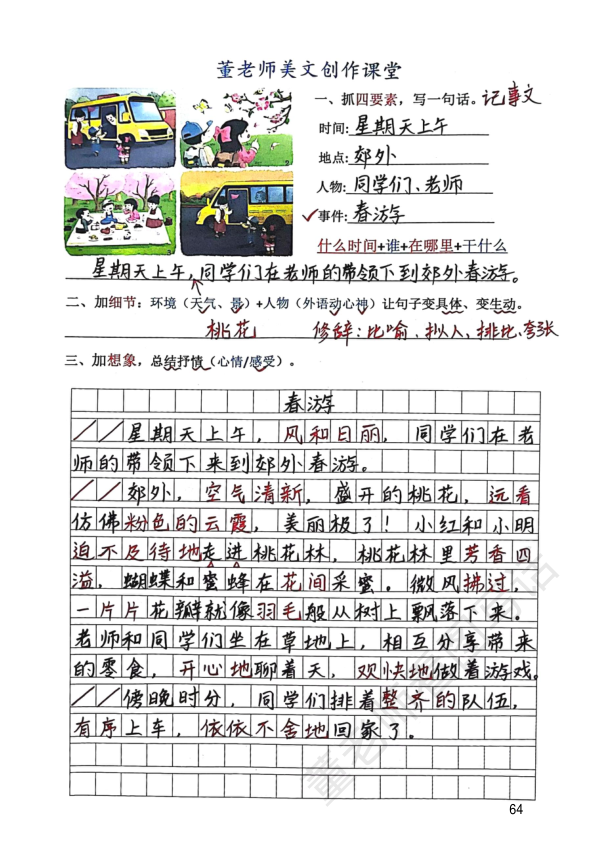 董老师美文创作课堂
一、抓四要素，写一句话。记事文
时间: 星期天上午
地点: 郊外
人物: 同学们、老师
✓事件: 春游
什么时间+谁+在哪里+干什么
星期天上午，同学们在老师的带领下到郊外春游。
二、加细节：环境（天气、景）+人物（外语动心神）让句子变具体、变生动。
桃花 修辞：比喻、拟人、排比、夸张
三、加想象，总结抒情（心情/感受）。
春游
星期天上午，风和日丽，同学们在老
师的带领下来到郊外春游。
郊外，空气清新，盛开的桃花，远看
仿佛粉色的云霞，美丽极了！小红和小明
迫不及待地走进桃花林，桃花林里芳香四
溢，蝴蝶和蜜蜂在花间采蜜。微风拂过，
一片片花瓣就像羽毛般从树上飘落下来。
老师和同学们坐在草地上，相互分享带来
的零食，开心地聊着天，欢快地做着游戏。
傍晚时分，同学们排着整齐的队伍，
有序上车，依依不舍地回家了。
64